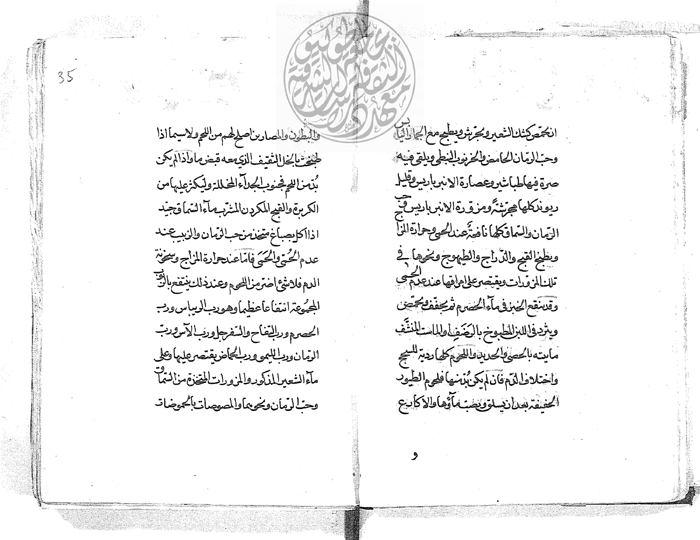 ان يحمص كشك الشعير ويجرش ويطبخ مع الجمار اليابس
وحب الرمان الحامض والخرنوب النبطي ويلقى فيه
صرة فيها طباشير وعصارة الانبر باريس وقليل
ريوند كلها مجرشة ومزورة الانبر باريس وحب
الرمان والسماق كلها نافعة عند الحمى وحرارة المزاج
ويطبخ القبج والدراج والطيهوج ونحوها في
تلك المزورات ويقتصر على امراقها عند عدم الحمى
وقد ينقع الخبز في ماء الحصرم ثم يجفف ويحمص
ويثرد في اللبن المطبوخ بالرضف او المات المنشف
مايته بالحصى والحديد واللحوم كلها ردية للسحج
واختلاف الدم فان لم يكن بد منها فلحوم الطيور
الخفيفة بعد ان يسلق ويصب ماؤها والاكارع
و
35
والبطون والمصارين اصلح لهم من اللحم ولا سيما اذا
طبخت بالخل الثقيف الذي معه قبض ما واذا لم يكن
بد من اللحم فجنوب الجداء المخللة وليكثر عليها من
الكزبرة والقبج المكردن المشرب ماء السماق جيد
اذا اكل بصباغ متخذ من حب الرمان والزبيب عند
عدم الحمى فاما عند حرارة المزاج وسخونة
الدم فلا شئ اضر من اللحوم وعند ذلك ينتفع بالربوب
المجموعة انتفاعا عظيما وهو رب الريباس ورب
الحصرم ورب التفاح والسفرجل ورب الآس ورب
الرمان ورب الليمو ورب الحماض يقتصر عليها وعلى
ماء الشعير المذكور والمزورات المتخذة من السماق
وحب الرمان ونحوهما والمصوصات بالحموضات